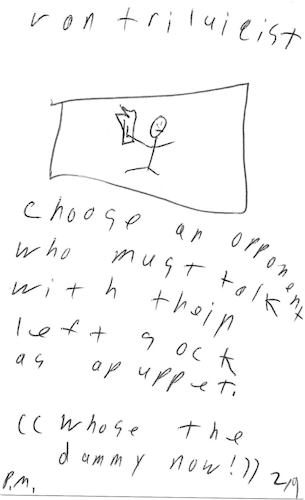 von triluicist
choose an opponent
who must talk
with theip
left sock
as apuppet.
((whose the
dammy now!))
P.M. 219